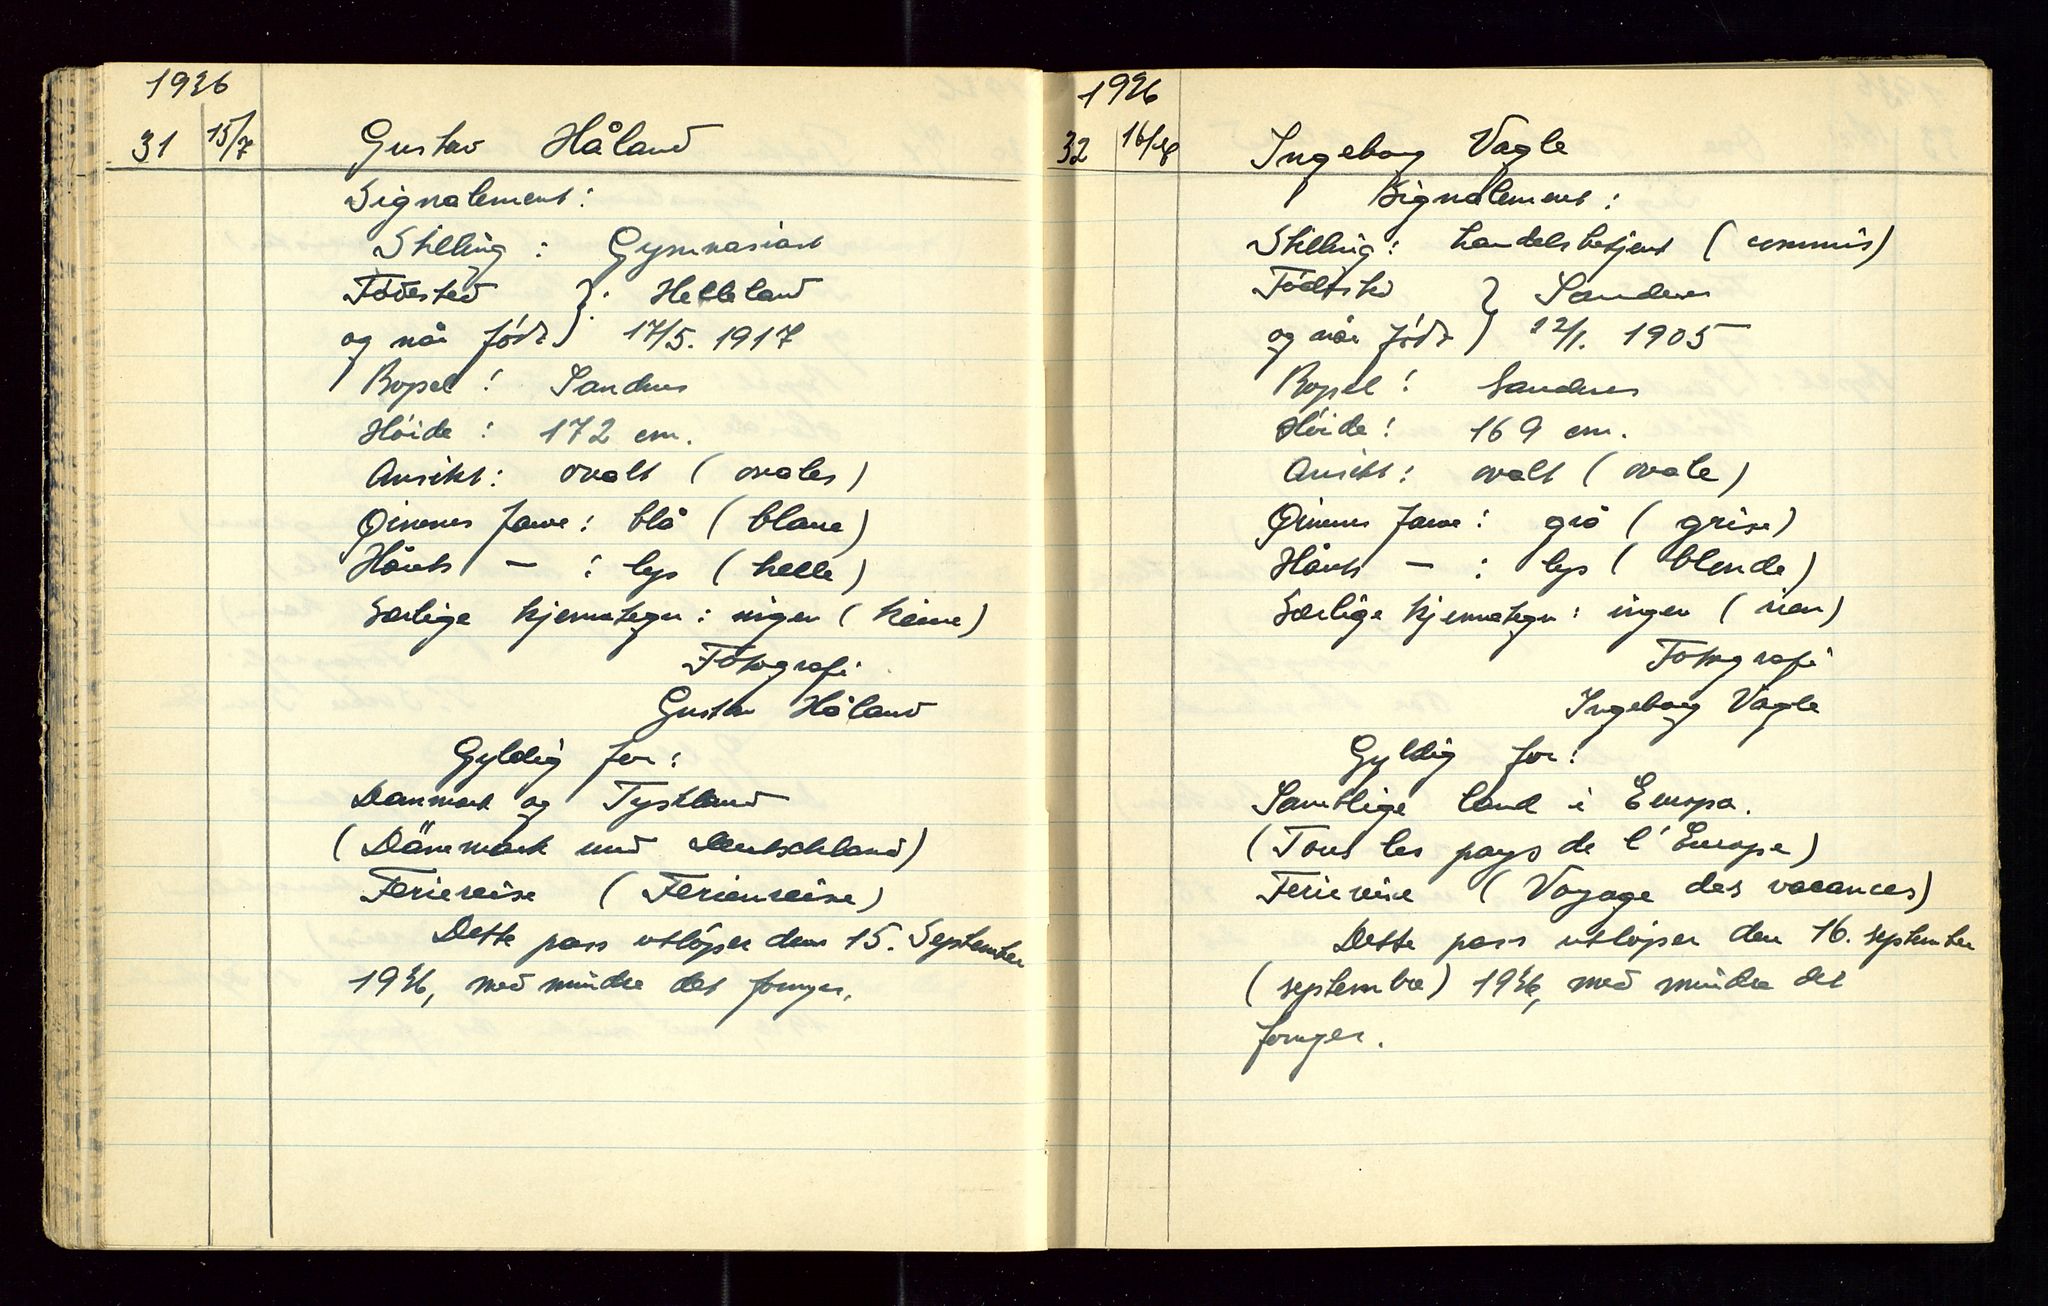 1936
31 15/7 Gustav Håland
Signalement:
Stilling: Gymnasiast
Fødested } : Helleland
og når født } 17/5. 1917
Bopel: Sandnes
Høide: 172 cm.
Ansikt: ovalt (ovales)
Øinenes farve: blå (blaue)
Hårets — : lys (helle)
Særlige kjennetegn: ingen (keine)
Fotografi
Gustav Håland
Gyldig for:
Danmark og Tyskland
(Dänemark und Deutschland)
Feriereise (Ferienreise)
Dette pass utløper den 15. September
1936, med mindre det fornyes.
1936
32 16/7 Ingeborg Vagle
Signalement:
Stilling: handelsbetjent (commis)
Fødested } Sandnes
og når født } 12/1. 1905
Bopel: Sandnes
Høide: 169 cm.
Ansikt: ovalt (ovale)
Øinenes farve: grå (grise)
Hårets — : lys (blonde)
Særlige kjennetegn: ingen (rien)
Fotografi
Ingeborg Vagle
Gyldig for:
Samtlige land i Europa.
(Tous les pays de l'Europe)
Feriereise (Voyage des vacances)
Dette pass utløper den 16. september
(septembre) 1936, med mindre det
fornyes.